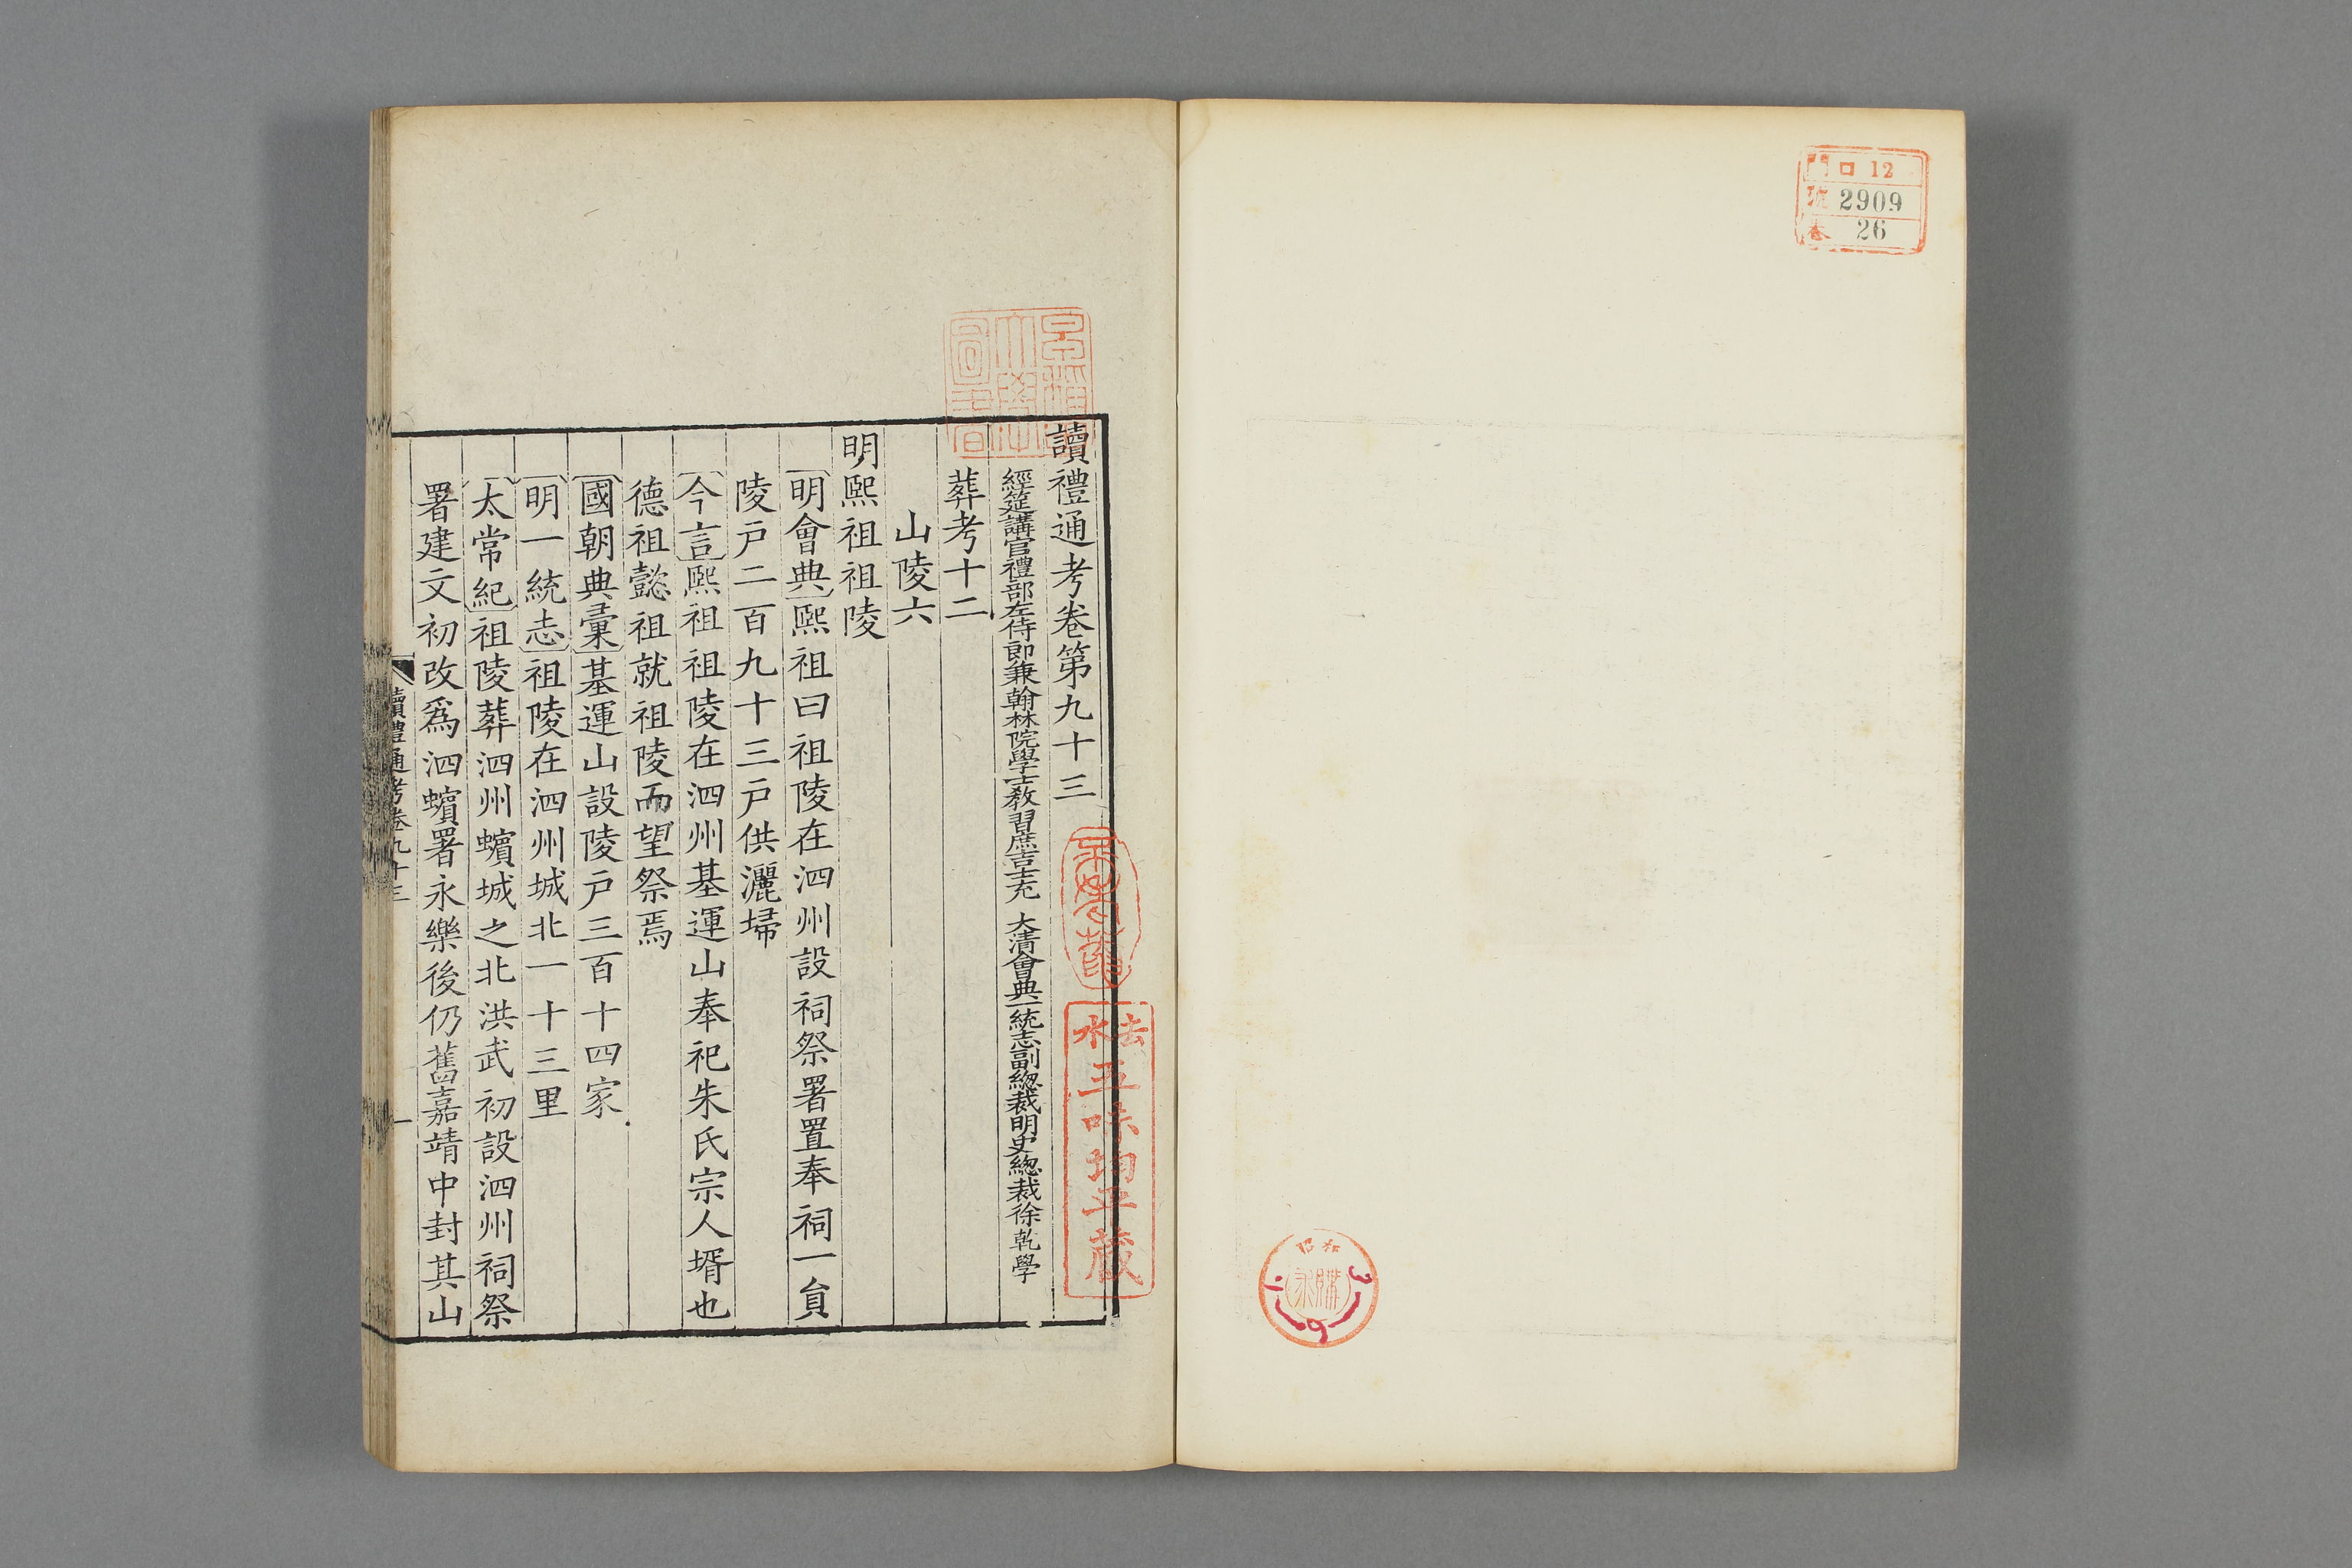 門 口 12
號 2909
巻 26
讀禮通考卷第九十三
經筵講官禮部左侍郎兼翰林院學士教習庶吉士充 大清會典一統志副總裁明史總裁徐乾學
葬考十二
山陵六
明熙祖祖陵
明會典熙祖曰祖陵在泗州設祠祭署置奉祠一員
陵戸二百九十三戸供灑埽
今言熙祖祖陵在泗州基運山奉祀朱氏宗人壻也
德祖懿祖就祖陵而望祭焉
國朝典彙基運山設陵戸三百十四家
明一統志祖陵在泗州城北一十三里
太常紀祖陵葬泗州蠙城之北洪武初設泗州祠祭
署建文初改爲泗蠙署永樂後仍舊嘉靖中封其山
讀禮通考卷九十三
一
五味均平藏
昭和
購求